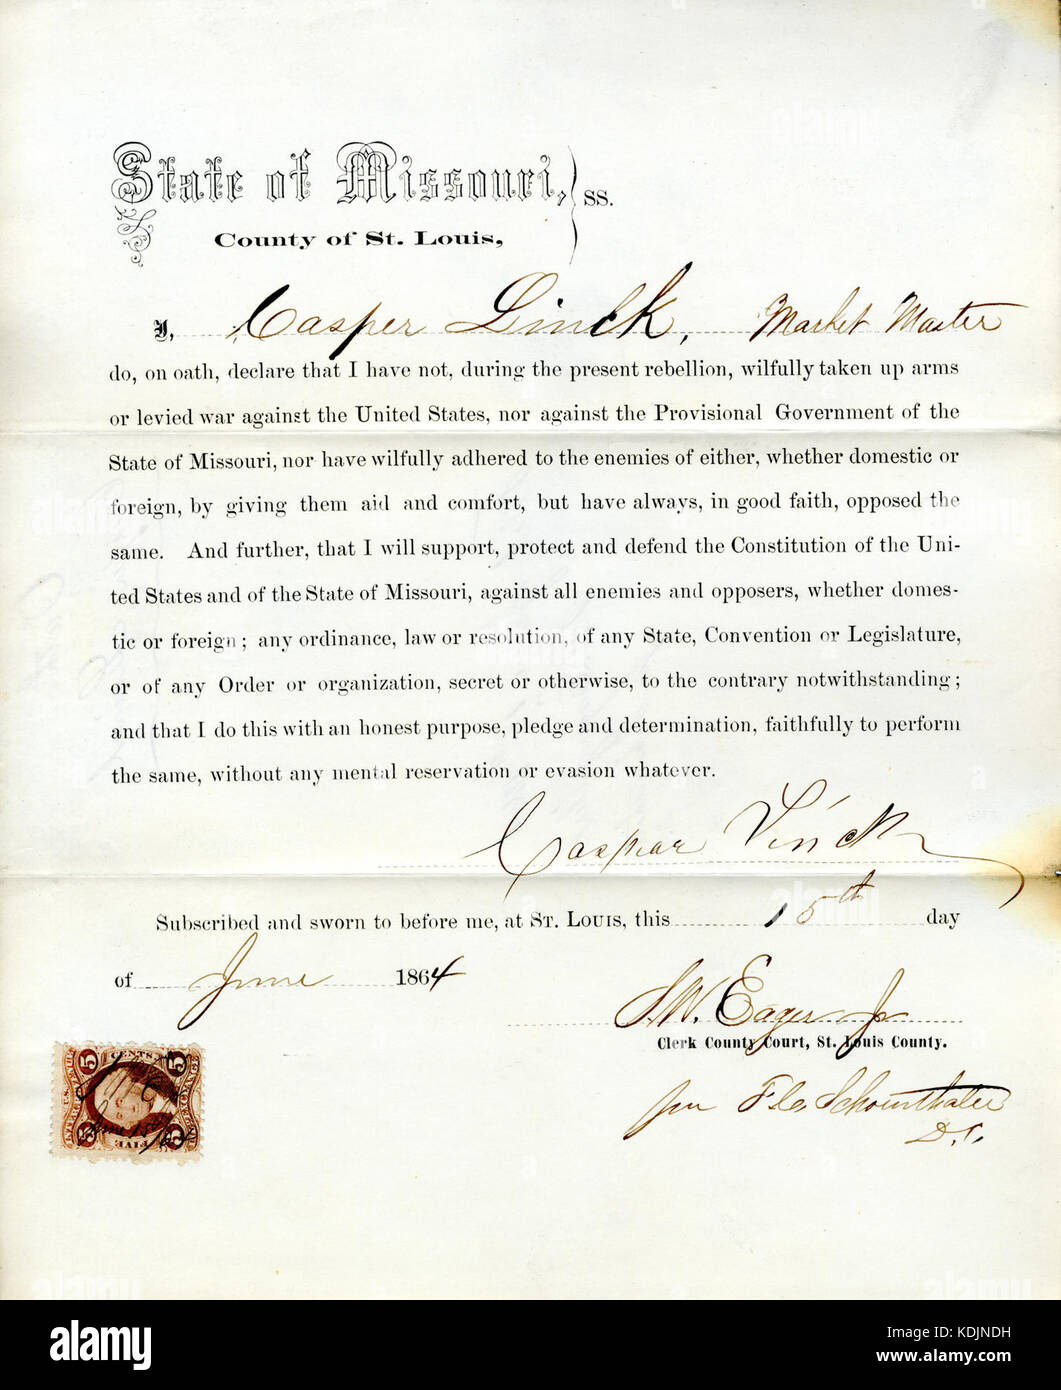 State of Missouri, } ss.
County of St. Louis,
I, Casper Linck, Market Master
do, on oath, declare that I have not, during the present rebellion, wilfully taken up arms
or levied war against the United States, nor against the Provisional Government of the
State of Missouri, nor have wilfully adhered to the enemies of either, whether domestic or
foreign, by giving them aid and comfort, but have always, in good faith, opposed the
same. And further, that I will support, protect and defend the Constitution of the Uni-
ted States and of the State of Missouri, against all enemies and opposers, whether domes-
tic or foreign; any ordinance, law or resolution, of any State, Convention or Legislature,
or of any Order or organization, secret or otherwise, to the contrary notwithstanding;
and that I do this with an honest purpose, pledge and determination, faithfully to perform
the same, without any mental reservation or evasion whatever.
Caspar Linck
Subscribed and sworn to before me, at St. Louis, this 15th day
of June 1864
S. W. Eager Jr
Clerk County Court, St. Louis County.
D. C.
5 CENTS 5
U.S. INTER. REV.
FIVE
alamy
Image ID: KDJNDH
www.alamy.com